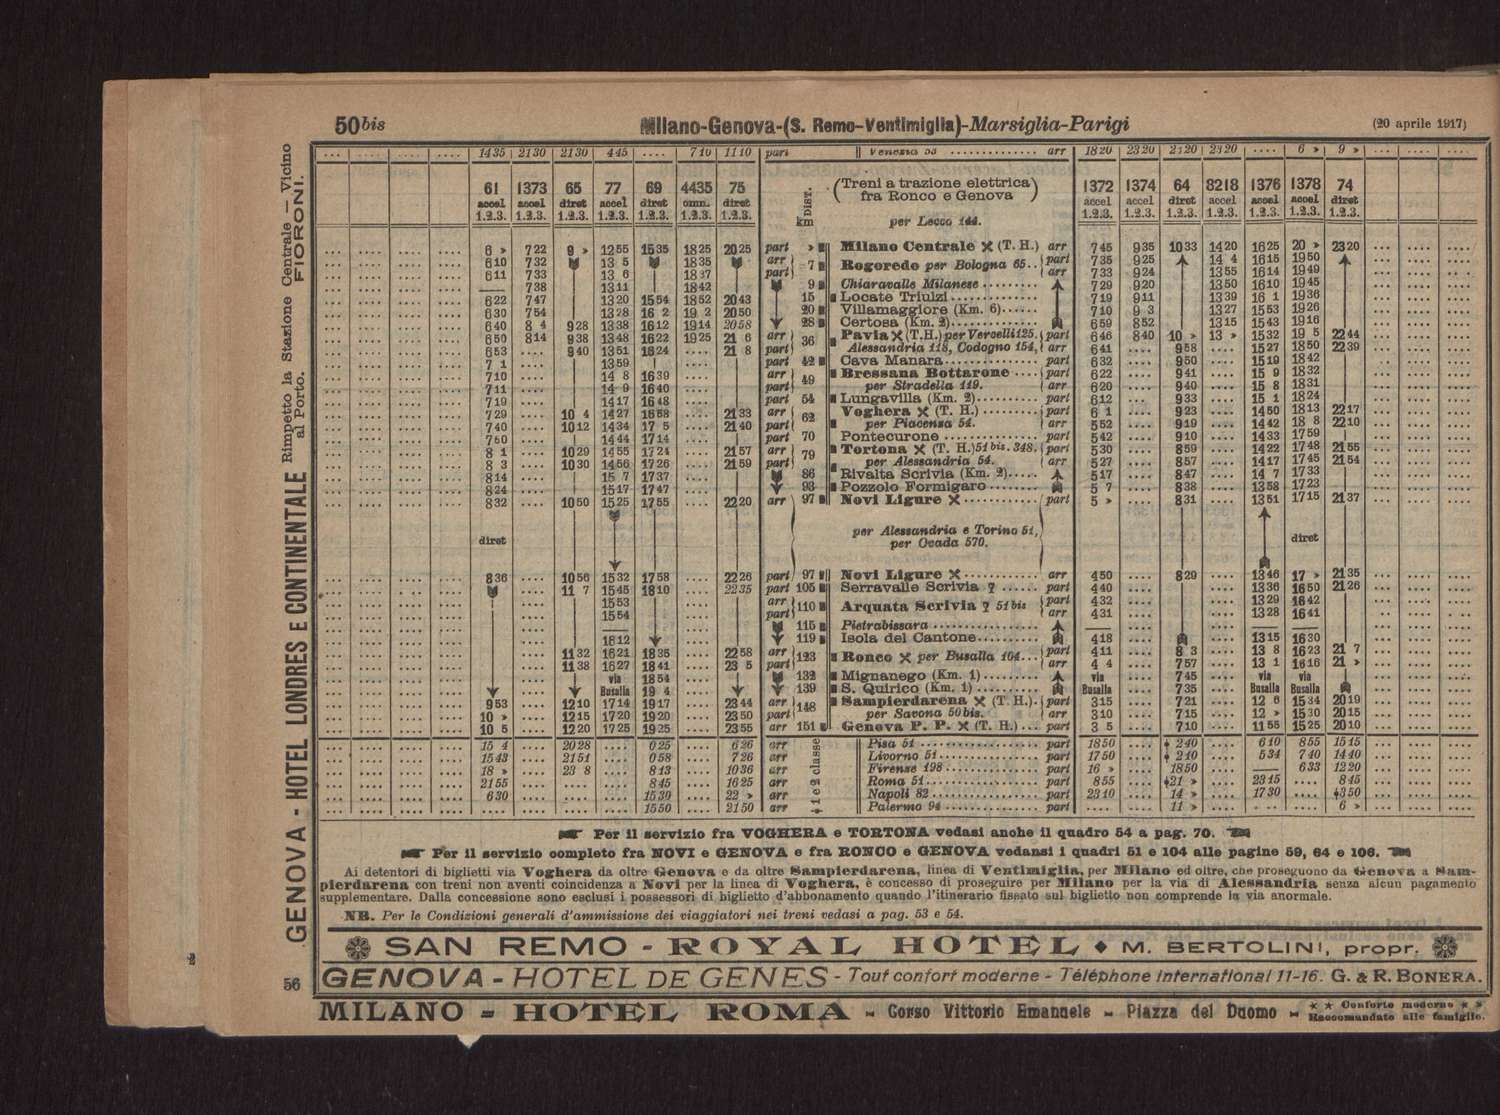 50bis Milano-Genova-(S. Remo-Ventimiglia)-Marsiglia-Parigi (20 aprile 1917)
1435 2130 2130 445 .... 710 1110 part Venezia 53 arr 1820 2320 2120 2320 .... 6 » 9 »
61 1373 65 77 69 4435 75 DIST. (Treni a trazione elettrica 1372 1374 64 8218 1376 1378 74
accel accel diret accel diret omn. diret fra Ronco e Genova) accel accel diret accel accel accel diret
1.2.3. 1.2.3. 1.2.3. 1.2.3. 1.2.3. 1.2.3. 1.2.3. km per Lecco 144. 1.2.3. 1.2.3. 1.2.3. 1.2.3. 1.2.3. 1.2.3. 1.2.3.
6 » 722 9 » 1255 1535 1825 2025 part » Milano Centrale (T. H.) arr 745 935 1033 1420 1625 20 » 2320
610 732 13 5 1835 arr 7 Rogoredo per Bologna 65.. part 735 925 14 4 1615 1950
611 733 13 6 1837 part arr 733 924 1355 1614 1949
738 1311 1842 9 Chiaravalle Milanese 729 920 1350 1610 1945
622 747 1320 1554 1852 2043 15 Locate Triulzi 719 911 1339 16 1 1936
630 754 1328 16 2 19 2 2050 20 Villamaggiore (Km. 6) 710 9 3 1327 1553 1926
640 8 4 928 1338 1612 1914 2058 28 Certosa (Km. 2) 659 852 1315 1543 1916
650 814 938 1348 1622 1925 21 6 arr 36 Pavia (T.H.) per Vercelli 125, part 646 840 10 » 13 » 1532 19 5 2244
653 .... 940 1351 1624 .... 21 8 part Alessandria 118, Codogno 154, arr 641 .... 958 .... 1527 1850 2239
7 1 .... 1359 .... part 42 Cava Manara part 632 .... 950 .... 1519 1842
710 .... 14 8 1639 .... arr 49 Bressana Bottarone part 622 .... 941 .... 15 9 1832
711 .... 14 9 1640 .... part per Stradella 119. arr 620 .... 940 .... 15 8 1831
719 .... 1417 1648 .... part 54 Lungavilla (Km. 2) part 612 .... 933 .... 15 1 1824
729 .... 10 4 1427 1658 .... 2133 arr 62 Voghera (T. H.) part 6 1 .... 923 .... 1450 1813 2217
740 .... 1012 1434 17 5 .... 2140 part per Piacenza 54. arr 552 .... 919 .... 1442 18 8 2210
750 .... 1444 1714 .... part 70 Pontecurone part 542 .... 910 .... 1433 1759
8 1 .... 1029 1455 1724 .... 2157 arr 79 Tortona (T. H.) 51bis. 348. part 530 .... 859 .... 1422 1748 2155
8 3 .... 1030 1456 1726 .... 2159 part per Alessandria 54. arr 527 .... 857 .... 1417 1745 2154
814 .... 15 7 1737 .... 86 Rivalta Scrivia (Km. 2) 517 .... 847 .... 14 7 1733
824 .... 1517 1747 .... 93 Pozzolo Formigaro 5 7 .... 838 .... 1358 1723
832 .... 1050 1525 1755 .... 2220 arr 97 Novi Ligure part 5 » .... 831 .... 1351 1715 2137
per Alessandria e Torino 51,
diret per Ovada 570. diret
836 .... 1056 1532 1758 .... 2226 part 97 Novi Ligure arr 450 .... 829 .... 1346 17 » 2135
.... 11 7 1545 1810 .... 2235 part 105 Serravalle Scrivia part 440 .... 1336 1650 2126
.... 1553 .... arr 110 Arquata Scrivia 51bis part 432 .... 1329 1642
.... 1554 .... part arr 431 .... 1328 1641
115 Pietrabissara
.... 1612 .... 119 Isola del Cantone 418 .... 1315 1630
.... 1132 1621 1835 .... 2258 arr 123 Ronco per Busalla 104... part 411 .... 8 3 .... 13 8 1623 21 7
.... 1138 1627 1841 .... 23 5 part arr 4 4 .... 757 .... 13 1 1616 21 »
.... via 1854 .... 132 Mignanego (Km. 1) via .... 745 .... via via
.... Busalla 19 4 .... 139 S. Quirico (Km. 1) Busalla .... 735 .... Busalla Busalla
953 .... 1210 1714 1917 .... 2344 arr 148 Sampierdarena (T. H.). part 315 .... 721 .... 12 6 1534 2019
10 » .... 1215 1720 1920 .... 2350 part per Savona 50bis. arr 310 .... 715 .... 12 » 1530 2015
10 5 .... 1220 1725 1925 .... 2355 arr 151 Genova P. P. (T. H.) part 3 5 .... 710 .... 1155 1525 2010
15 4 .... 2028 .... 025 .... 626 arr Pisa 51 part 1850 .... 240 .... 610 855 1515
1543 .... 2151 .... 058 .... 726 arr Livorno 51 part 1750 .... 210 .... 534 740 1440
18 » .... 23 8 .... 813 .... 1036 arr Firenze 198 part 16 » .... 1850 .... 633 1220
2155 .... 845 .... 1625 arr Roma 51 part 855 .... 21 » .... 2315 .... 845
630 .... 1530 .... 22 » arr Napoli 82 part 2310 .... 14 » .... 1730 .... 350
.... 1550 .... 2150 arr Palermo 94 part .... 11 » .... 6 »
1 e 2 classe
Per il servizio fra VOGHERA e TORTONA vedasi anche il quadro 54 a pag. 70.
Per il servizio completo fra NOVI e GENOVA e fra RONCO e GENOVA vedansi i quadri 51 e 104 alle pagine 59, 64 e 106.
Ai detentori di biglietti via Voghera da oltre Genova e da oltre Sampierdarena, linea di Ventimiglia, per Milano ed oltre, che proseguono da Genova a Sam-
pierdarena con treni non aventi coincidenza a Novi per la linea di Voghera, è concesso di proseguire per Milano per la via di Alessandria senza alcun pagamento
supplementare. Dalla concessione sono esclusi i possessori di biglietto d'abbonamento quando l'itinerario fissato sul biglietto non comprende la via anormale.
NB. Per le Condizioni generali d'ammissione dei viaggiatori nei treni vedasi a pag. 53 e 54.
SAN REMO - ROYAL HOTEL ♦ M. BERTOLINI, propr.
GENOVA - HOTEL DE GENES - Tout confort moderne - Téléphone International 11-16. G. & R. BONERA.
MILANO - HOTEL ROMA - Corso Vittorio Emanuele - Piazza del Duomo - ★ ★ Conforto moderno ★ ★
Raccomandato alle famiglie.
GENOVA - HOTEL LONDRES E CONTINENTALE Rimpetto la Stazione Centrale - Vicino
al Porto. FIORONI.
56
2